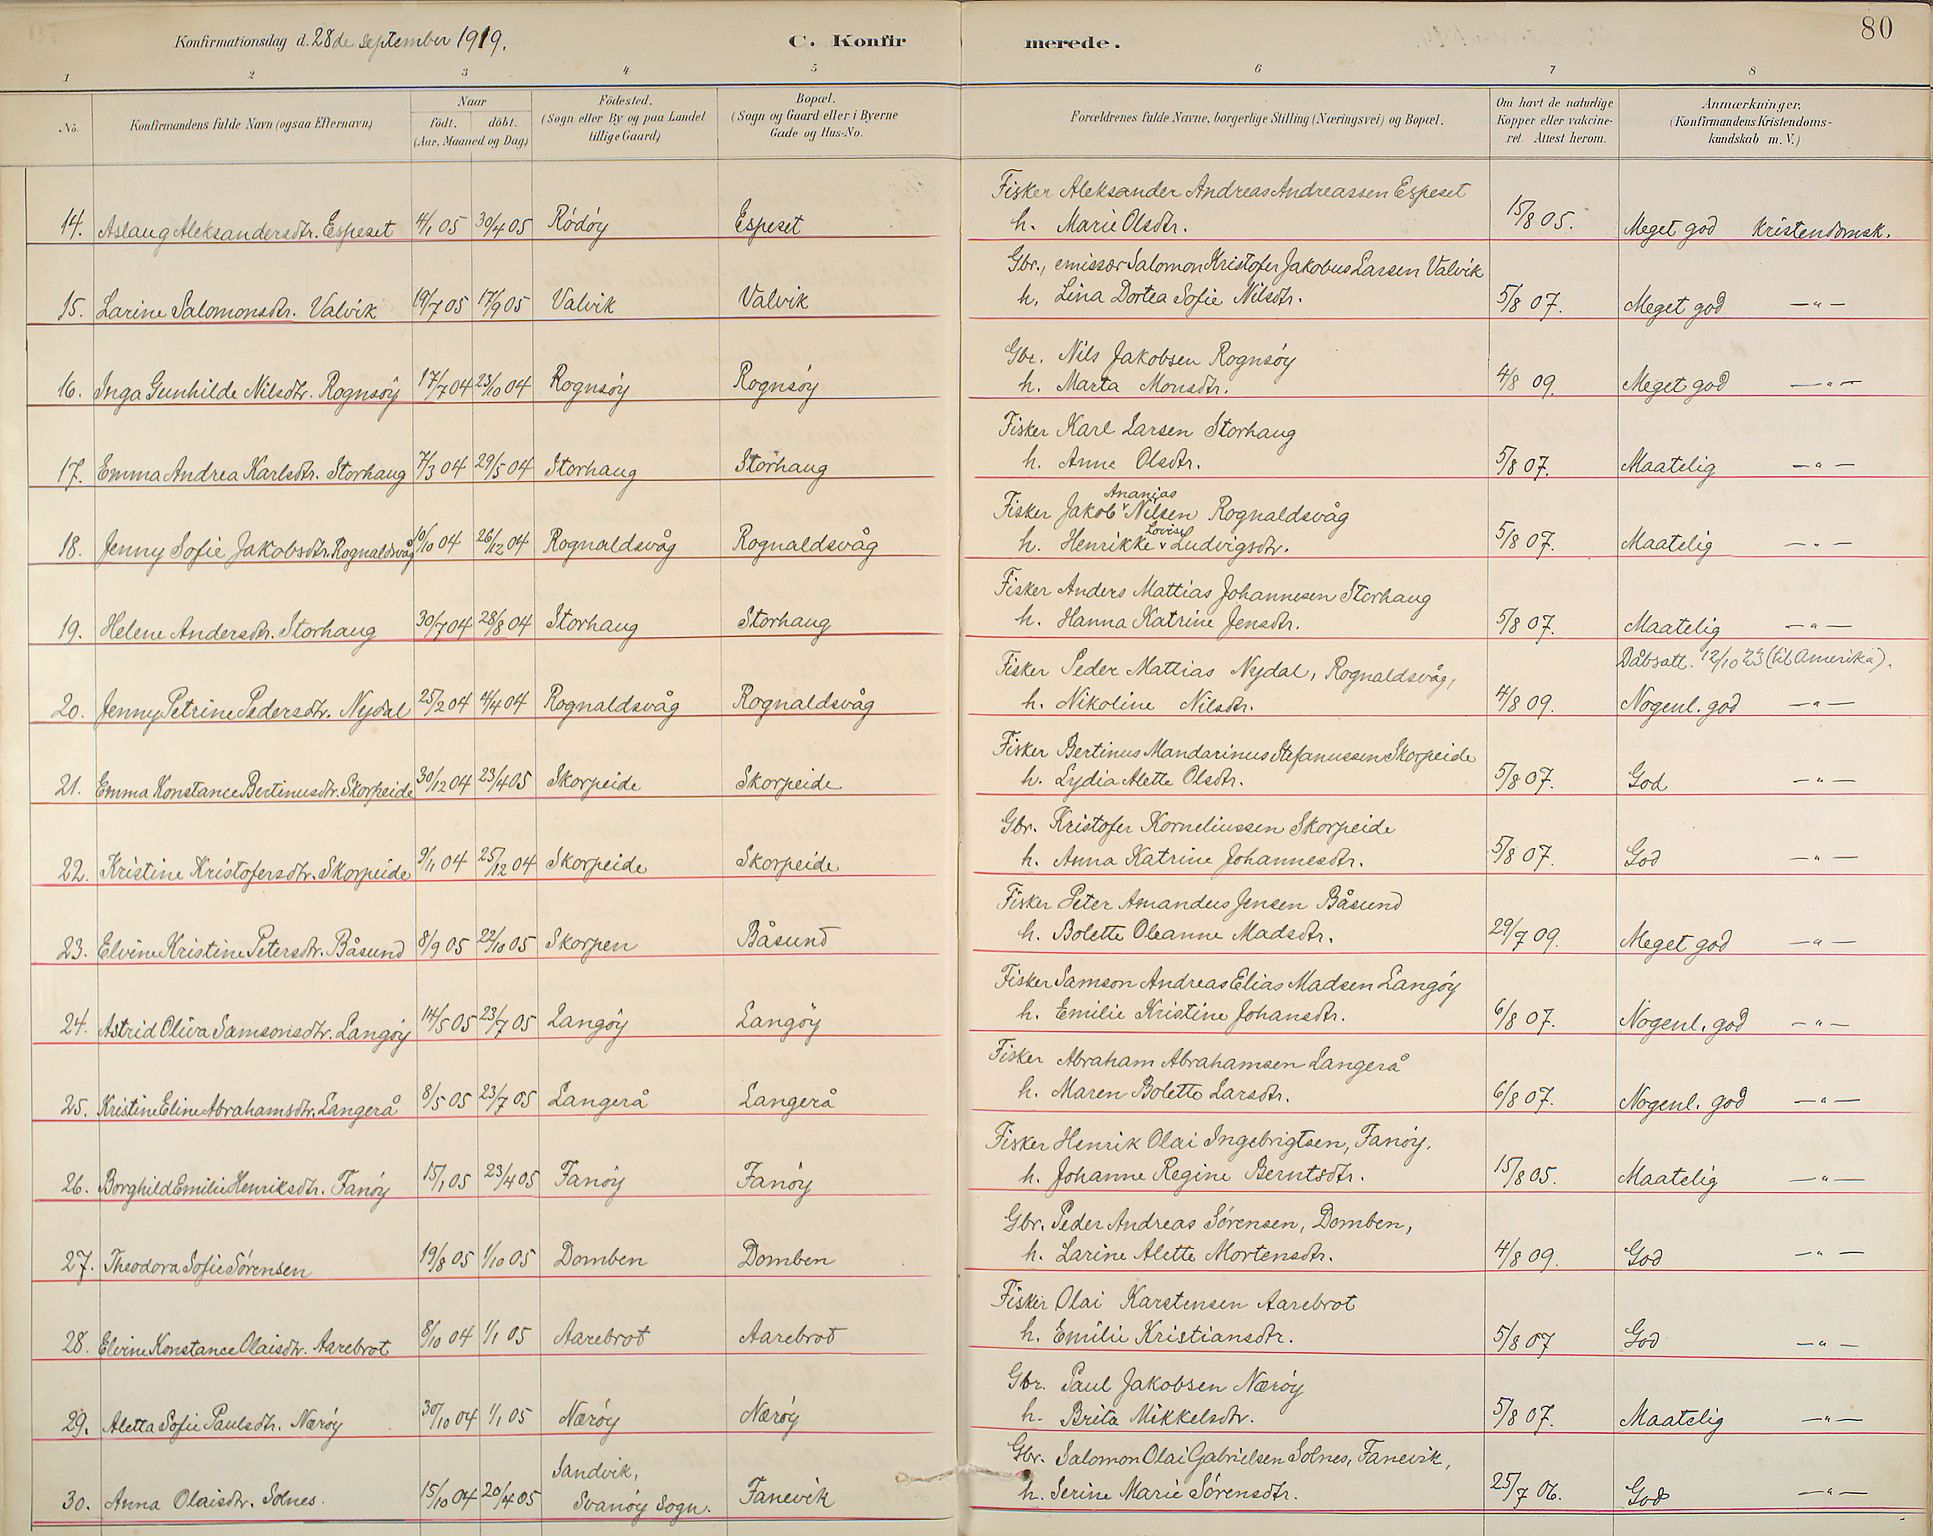 80
Konfirmationsdag d. 28de september 1919.
C. Konfirmerede.
1 2 3 4 5 6 7 8
No.
Konfirmandens fulde Navn (ogsaa Efternavn)
Naar
födt. döbt.
(Aar, Maaned og Dag)
Födested.
(Sogn eller By og paa Landet
tillige Gaard)
Bopæl.
(Sogn og Gaard eller i Byerne
Gade og Hus-No.
Forældrenes fulde Navne, borgerlige Stilling (Næringsvei) og Bopæl.
Om havt de naturlige
Kopper eller vakcine-
ret. Attest herom.
Anmærkninger.
(Konfirmandens Kristendoms-
kundskab m. V.)
Fisker Aleksander Andreas Andreassen Espeset
14. Aslaug Aleksandersdtr. Espeset 4/1 05 30/4 05 Rödöy Espeset h. Marie Olsdtr. 15/8 05. Meget god Kristendomsk.
Gbr., emissær Salomon Kristofer Jakobus Larsen Valvik
15. Larine Salomonsdtr. Valvik 19/7 05 17/9 05 Valvik Valvik h. Lina Dortea Sofie Nilsdtr. 5/8 07. Meget god —"—
Gbr. Nils Jakobsen Rognsöy
16. Inga Gunhilde Nilsdtr. Rognsöy 17/7 04 23/10 04 Rognsöy Rognsöy h. Marta Monsdtr. 4/8 09. Meget god —"—
Fisker Karl Larsen Storhaug
17. Emma Andrea Karlsdtr. Storhaug 7/3 04 29/5 04 Storhaug Storhaug h. Anne Olsdtr. 5/8 07. Maatelig —"—
Ananias
Fisker Jakob Nilsen Rognaldsvåg
Lovise
18. Jenny Sofie Jakobsdtr. Rognaldsvåg 10/10 04 26/12 04 Rognaldsvåg Rognaldsvåg h. Henrikke Ludvigsdtr. 5/8 07. Maatelig —"—
Fisker Anders Mattias Johannesen Storhaug
19. Helene Andersdtr. Storhaug 30/7 04 28/8 04 Storhaug Storhaug h. Hanna Katrine Jensdtr. 5/8 07. Maatelig —"—
Fisker Peder Mattias Nydal, Rognaldsvåg, Dåbsatt. 12/10 23 (til Amerika).
20. Jenny Petrine Pedersdtr. Nydal 25/2 04 4/4 04 Rognaldsvåg Rognaldsvåg h. Nikoline Nilsdtr. 4/8 09. Nogenl. god —"—
Fisker Bertinus Mandarinus Stefanussen Skorpeide
21. Emma Konstance Bertinusdtr. Skorpeide 30/12 04 23/4 05 Skorpeide Skorpeide h. Lydia Alette Olsdtr. 5/8 07. God —"—
Gbr. Kristofer Korneliussen Skorpeide
22. Kristine Kristofersdtr. Skorpeide 9/11 04 25/12 04 Skorpeide Skorpeide h. Anna Katrine Johannesdtr. 5/8 07. God —"—
Fisker Peter Amandus Jensen Båsund
23. Elvine Kristine Petersdtr. Båsund 8/9 05 22/10 05 Skorpen Båsund h. Bolette Oleanne Madsdtr. 29/7 09. Meget god —"—
Fisker Samson Andreas Elias Madsen Langöy
24. Astrid Oliva Samsonsdtr. Langöy 14/5 05 23/7 05 Langöy Langöy h. Emilie Kristine Johansdtr. 6/8 07. Nogenl. god —"—
Fisker Abraham Abrahamsen Langerå
25. Kristine Eline Abrahamsdtr. Langerå 8/5 05 23/7 05 Langerå Langerå h. Maren Bolette Larsdtr. 6/8 07. Nogenl. god —"—
Fisker Henrik Olai Ingebrigtsen, Fanöy,
26. Borghild Emilie Henriksdtr. Fanöy 15/1 05 23/4 05 Fanöy Fanöy h. Johanne Regine Berntsdtr. 15/8 05. Maatelig —"—
Gbr. Peder Andreas Sörensen, Domben,
27. Theodora Sofie Sörensen 19/8 05 1/10 05 Domben Domben h. Larine Alette Mortensdtr. 4/8 09. God —"—
Fisker Olai Karstensen Aarebrot
28. Elvine Konstance Olaisdtr. Aarebrot 8/10 04 1/1 05 Aarebrot Aarebrot h. Emilie Kristiansdtr. 5/8 07 God —"—
Gbr. Paul Jakobsen Næröy
29. Aletta Sofie Paulsdtr. Næröy 30/10 04 1/1 05 Næröy Næröy h. Brita Mikkelsdtr. 5/8 07. Maatelig —"—
Sandvik, Gbr. Salomon Olai Gabrielsen Solnes, Fanevik,
30. Anna Olaisdtr. Solnes. 15/10 04 20/4 05 Svanöy Sogn. Fanevik h. Serine Marie Sörensdtr. 25/7 06. God —"—